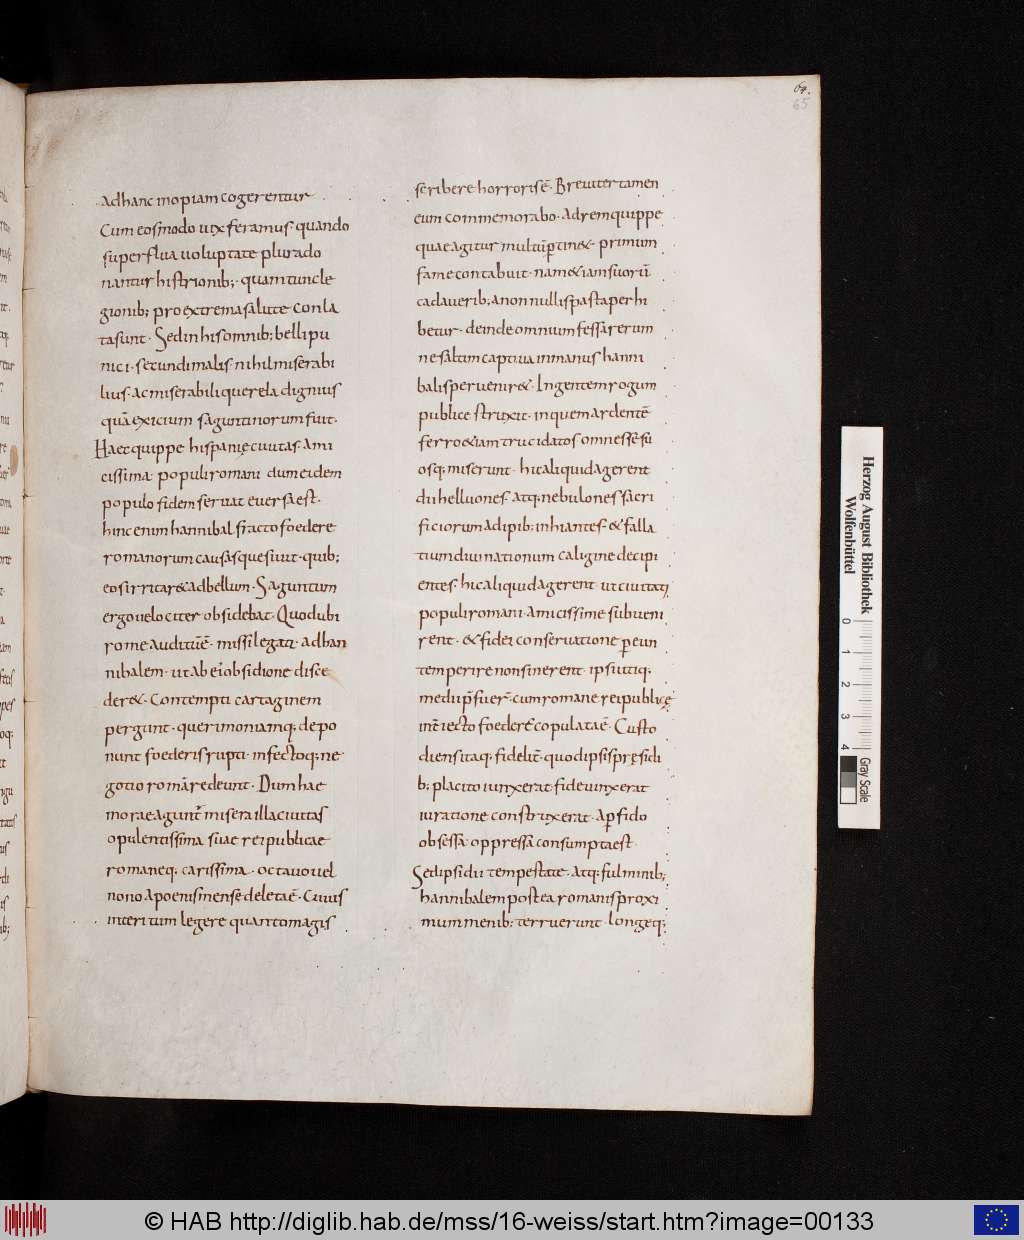 64.
65
adhanc inopiam cogerentur
Cum eosmodo uix feramus· quando
superflua uoluptate plurado
nantur histrionib;· quam tuncle
gionib; proextrema salute conla
ta sunt· Sed in his omnib; belli pu
nici· secundi malis· nihil miserabi
lius· ac miserabili querela dignius
quā exicium saguntinorum fuit·
Haec quippe hispanię ciuitas· ami
cissima populi romani dum eidem
populo fidem seruat euersa est·
hinc enim hannibal fracto foedere
romanorum causas quesiuit· quib;
eos irritar& ad bellum· Saguntum
ergo uelociter obsidebat· Quod ubi
rome auditū ē· missi legati· ad han
nibalem· ut ab ei' obsidione disce
der&· Contempti cartaginem
pergunt· querimoniamq; depo
nunt foederis rupti· infectoq; ne
gotio romā redeunt· Dum hae
morae agunt' misera illa ciuitas
opulentissima suae rei publicae
romaneq; carissima· octauo uel
nono a poenis mense deleta ē· Cuius
interitum legere quanto magis
scribere horroris ē· Breuiter tamen
eum commemorabo· Ad rem quippe
quae agitur multū ptin&· primum
fame contabuit· nam & iam suorū
cadauerib; a nonnullis pasta perhi
betur· deinde omnium fessa rerum
ne saltim captiua in manus hanni
balis peruenir&· Ingentem rogum
publice struxit· in quem ardentē
ferro &iam trucidatos omnes se su
osq; miserunt· hic aliquid agerent
dii helluones· atq; nebulones sacri
ficiorum adipib; inhiantes· & falla
tium diuinationum caligine decipi
entes· hic aliquid agerent ut ciuitati
populi romani amicissime subueni
rent· & fidei conservatione pereun
tem perire non sinerent· ipsi utiq;
medii pfuer· cum romane rei publicę
int iecto foedere copulata ē· Custo
diens itaq; fidelit quod ipsis pręsidi
b; placito iunxerat fide uinxerat
iuratione constrixerat· A pfido
obsessa oppressa consumpta est·
Sed ipsi dii tempestate· atq; fulminib;
hannibalem postea romanis proxi
mum menib; terruerunt· longeq;
Herzog August Bibliothek
Wolfenbüttel
0 1 2 3 4
Gray Scale
© HAB http://diglib.hab.de/mss/16-weiss/start.htm?image=00133